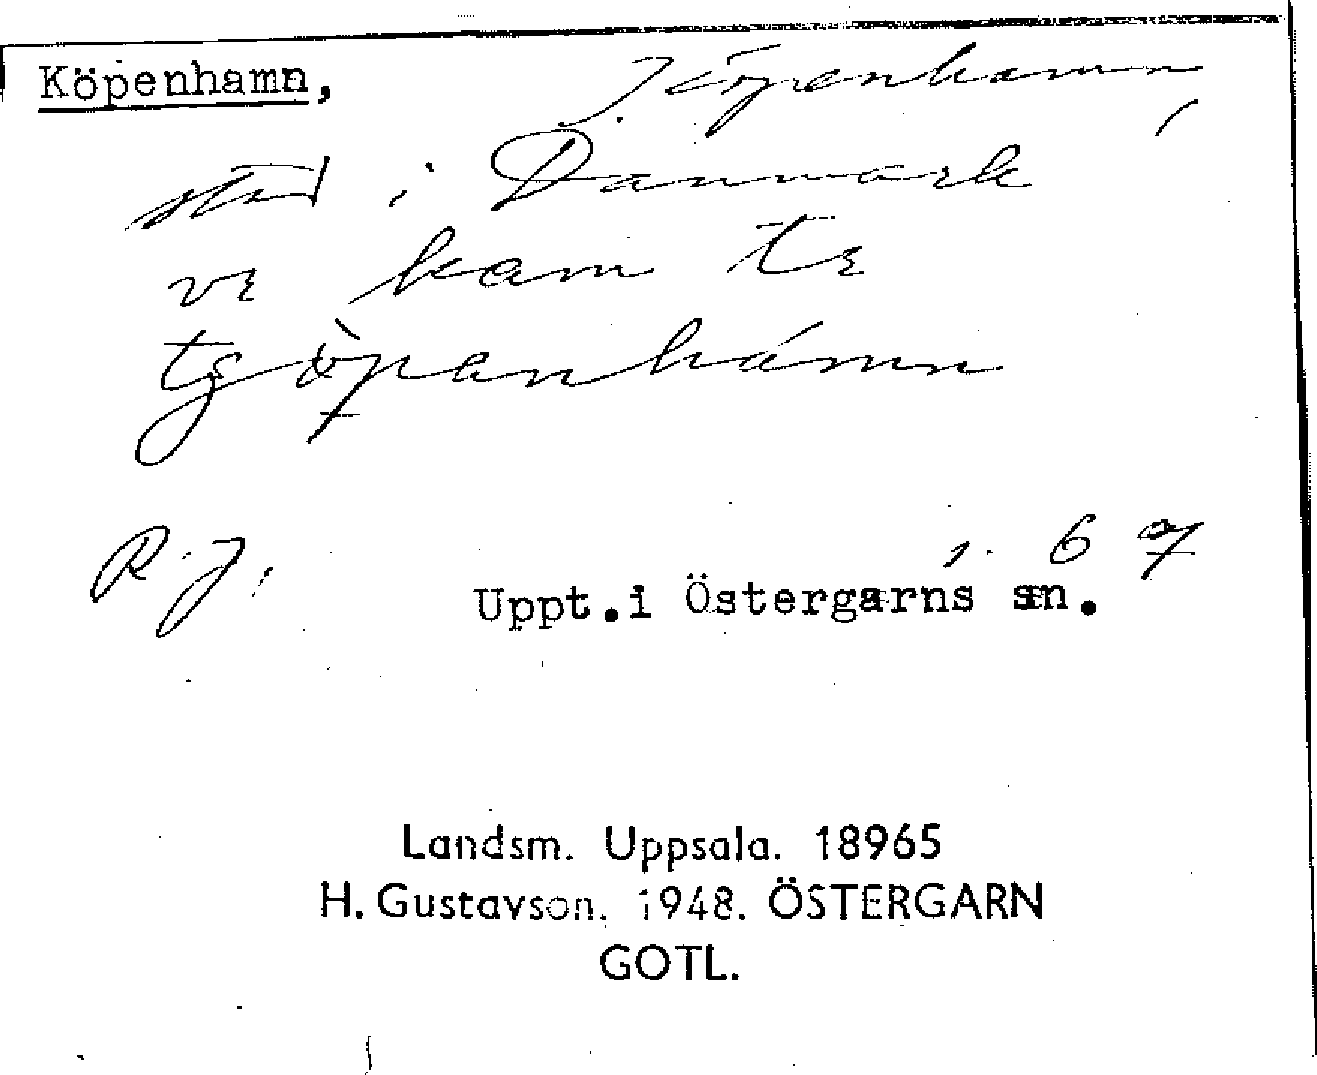 Köpenhamn, Köpenhamn,
stad i Danmark
vε kam tε
tʂòpanhámn
R.J. s. 67
Uppt.i Östergarns sn.
Landsm. Uppsala. 18965
H. Gustavson. 1948. ÖSTERGARN
GOTL.